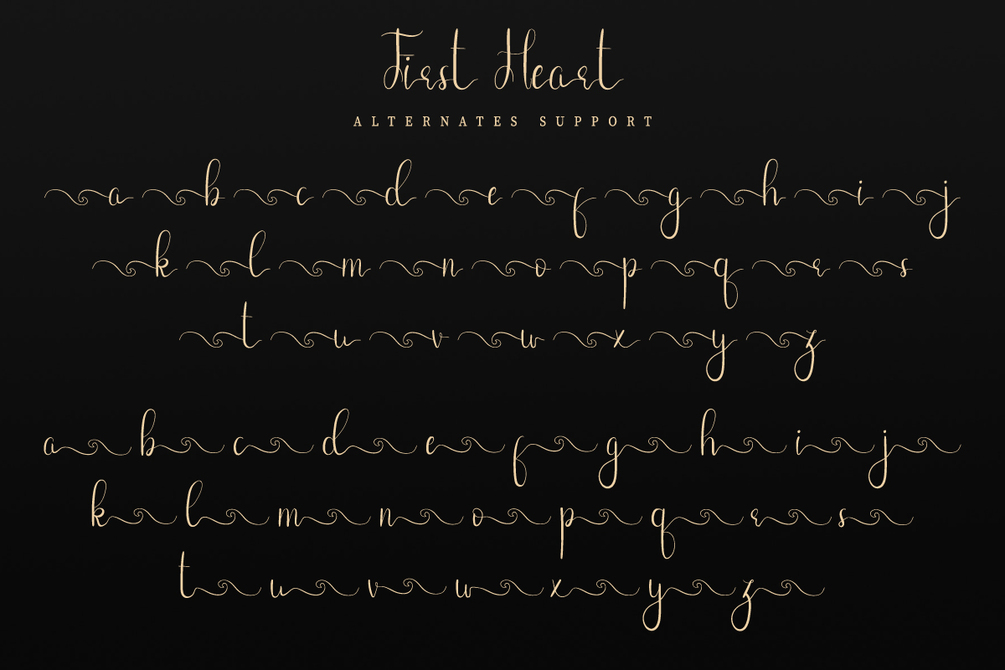 First Heart
ALTERNATES SUPPORT
a b c d e f g h i j
k l m n o p q r s
t u v w x y z
a b c d e f g h i j
k l m n o p q r s
t u v w x y z